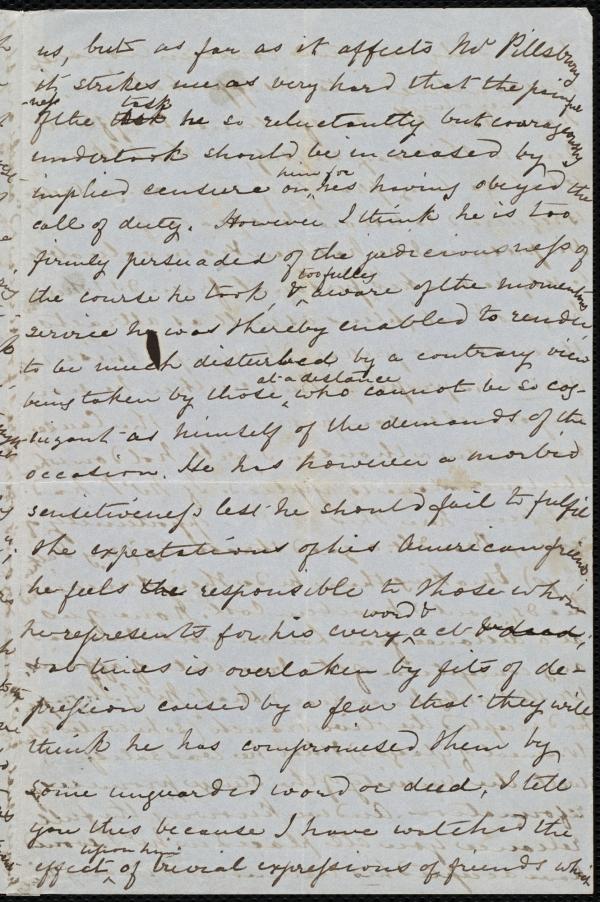 us, but as far as it affects Mr Pillsbury
it strikes me as very hard that the painful
-ness of the task he so reluctantly but courageously
undertook should be increased by
implied censure on him for his having obeyed the
call of duty. However I think he is too
firmly persuaded of the judiciousness of
the course he took, & too fully aware of the momentous
service he was thereby enabled to render
to be much disturbed by a contrary view
being taken by those at a distance who cannot be so cog-
-nizant as himself of the demands of the
occasion. He has however a morbid
sensitiveness lest he should fail to fulfil
the expectations of his American friends,
he feels the responsible to those whom
he represents for his every word & act & deed,
& at times is overtaken by fits of de-
pression caused by a fear that they will
think he has compromised them by
some unguarded word or deed, I tell
you this because I have watched the
effect upon him of trivial expressions of friends which